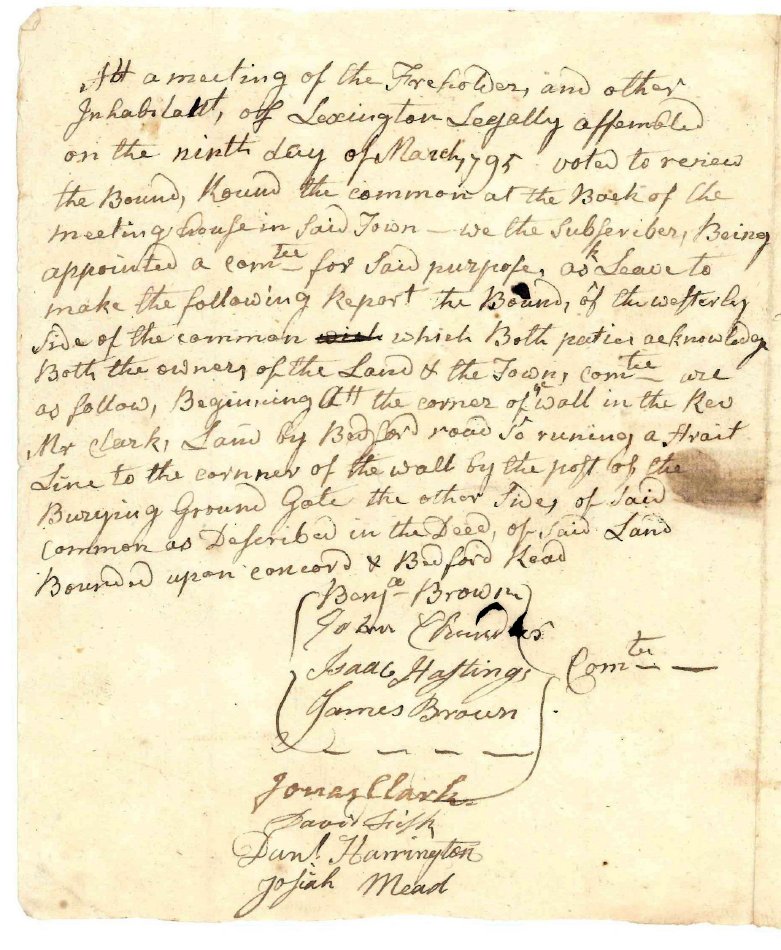 Att a meeting of the Freholders and other
Inhabitants of Lexington Legally assembled
on the ninth day of March 1795 voted to review
the Bounds Round the common at the Back of the
meeting house in said Town – we the subscribers Being
appointed a comtee for said purpose, ask Leave to
make the following Report the Bounds of the westerly
side of the common which Both paties acknowledge
Both the owners of the Land & the Towns comtee are
as follows Beginning Att the corner of ye wall in the Rev
Mr Clarks Land by Bedford road so runing a strait
Line to the cornner of the wall by the post of the
Burying Ground Gate the other sides of said
common as Described in the Deeds of said Land
Bounded upon concord & Bedford Road
Benja Brown
John Chandler
Isaac Hastings Comtee
James Brown
Jonas Clark
David Fisk
Danl Harrington
Josiah Mead